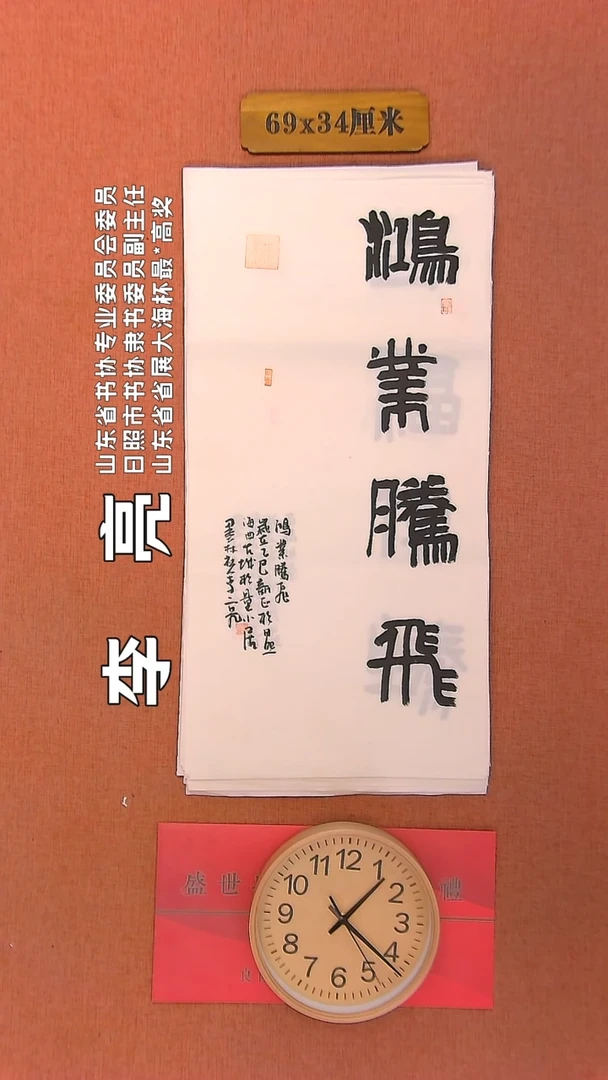 69x34厘米
鴻業騰飛
鴻業騰飛
歲在乙巳新正於日照
海四古城於墨小居
墨林李亮
山东省书协专业委员会委员
日照市书协隶书委员副主任
山东省省展大海杯最*高奖
李亮
盛世
禮
11 12 1
10 2
9 3
8 4
7 6 5